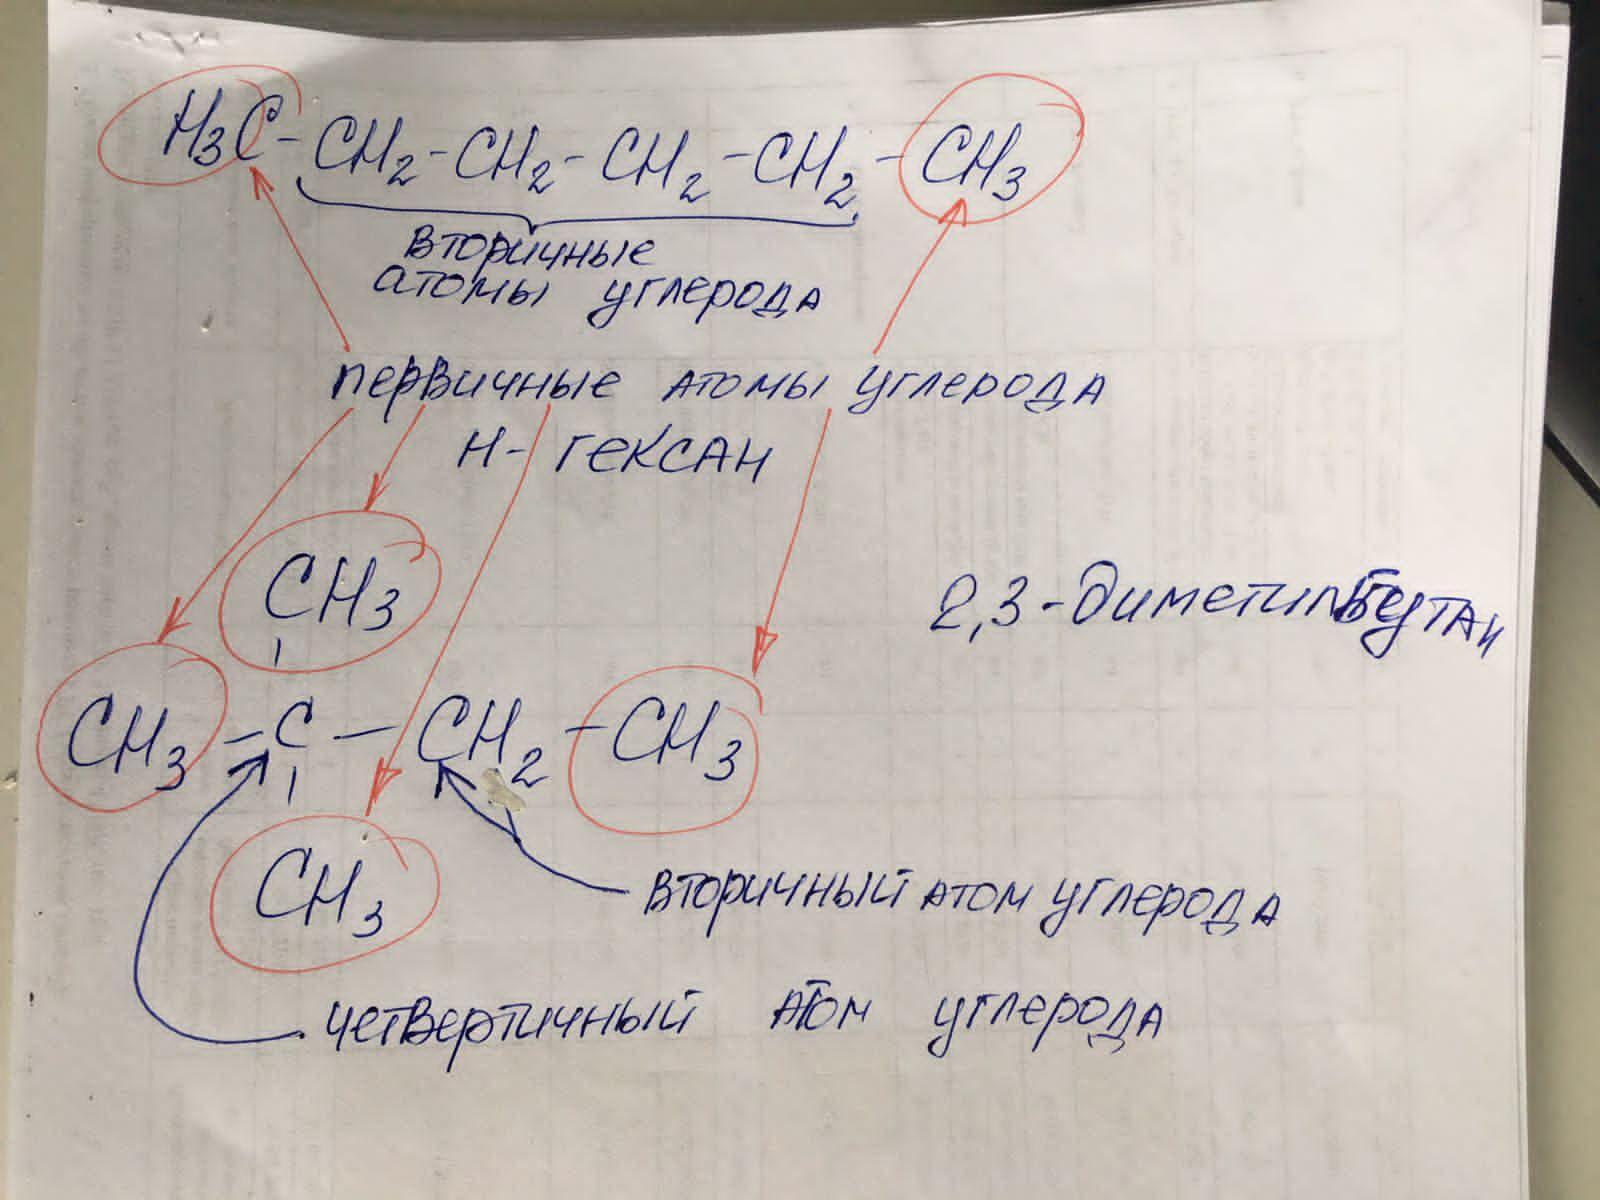 H₃C-CH₂-CH₂-CH₂-CH₂-CH₃
вторичные
атомы углерода
первичные атомы углерода
н-гексан
CH₃
2,3-диметилбутан
CH₃-C-CH₂-CH₃
CH₃
вторичный атом углерода
четвертичный атом углерода